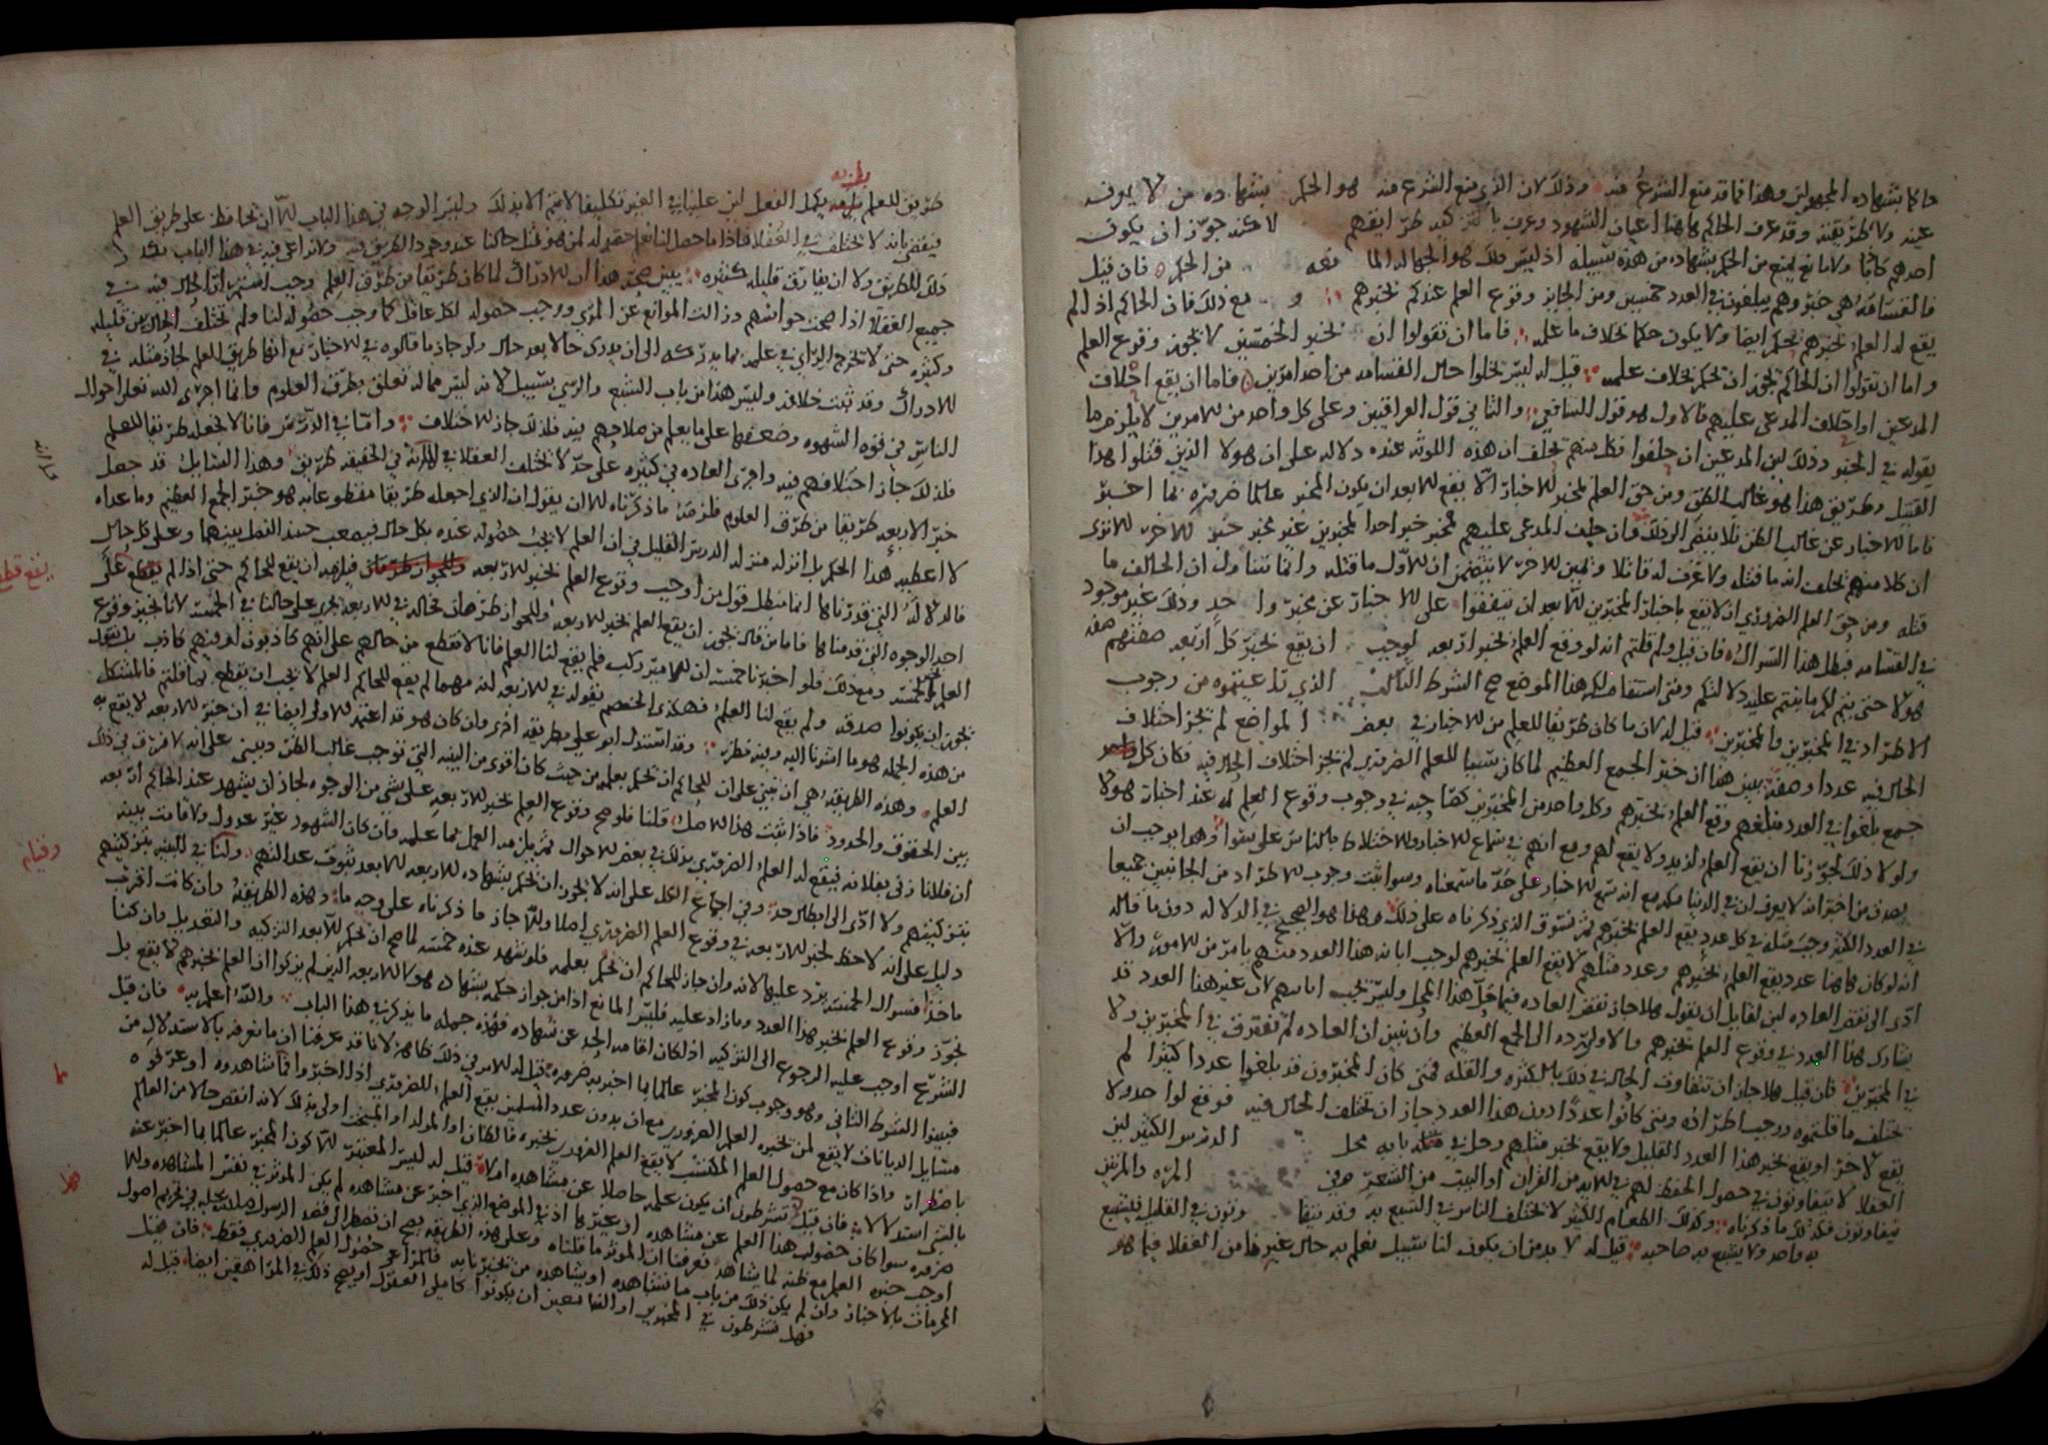 حاكما بشهاده المجهولين وهذا مما قد منع الشرع منه وذلك لان الذي منع الشرع منه هو الحكم بشهاده من لا يعرف
عينه ولا طريقته وقد عرف الحاكم هاهنا اعيان الشهود وعرف طرايقهم لا عند جوز ان يكون
احدهم كاذبا ولا مانع يمنع من الحكم بشهاده من هذه سبيله اذ ليس هو الجهاله فان قيل
فالقسامه هي خبر وهم يبلغون في العدد خمسين ومن الجايز وقوع العلم عندكم بخبرهم ومع ذلك فان الحاكم اذا لم
يقع له العلم بخبرهم يحكم ايضا ولا يكون حكما بخلاف ما علمه فاما ان تقولوا ان بخبر الخمسين لا يجوز وقوع العلم
واما ان تقولوا ان الحاكم يجوز ان يحكم بخلاف علمه قيل له ليس يخلوا حال القسامه من احد امرين فاما ان يقع احلاف
المدعين او احلاف المدعى عليهم فالاول هو قول الشافعي والثاني قول العراقيين وعلى كل واحد من الامرين لا يلزم ما
يقوله في الخبر وذلك لان المدعين ان حلفوا فكل منهم يحلف ان هذه اللوثه عنده دلاله على ان هولا الذين قتلوا هذا
القتيل وطريق هذا هو غالب الظن ومن حق العلم بمخبر الاخبار الا يقع الا بعد ان يكون المخبر عالما ضروره بما اخبر
فاما الاخبار عن غالب الظن فلا يفضي الى ذلك فان حلف المدعى عليهم فمخبر خبر احد المخبرين غير مخبر خبر الاخر الا ترى
ان كلا منهم يحلف انه ما قتله ولا عرف له قاتلا ويمين الاخر لا يتضمن ان الاول ما قتله وانما تتناول ان الحالف ما
قتله ومن حق العلم الضروري ان لا يقع باخبار المخبرين الا بعد ان يتفقوا على الاخبار عن مخبر واحد وذلك غير موجود
في القسامه فبطل هذا السوال فان قيل ولم قلتم انه لو وقع العلم بخبر اربعه لوجب ان يقع بخبر كل اربعه صفتهم صفه
هولا حتى يتم لكم ما بنيتم عليه دلالتكم ومتى استقام لكم هذا الموضع صح الشرط الثالث الذي تدعيتموه من وجوب
الاطراد في المخبرين والمخبرين قيل له ان ما كان طريقا للعلم من الاخبار في بعض المواضع لم يجز اختلاف
الحال فيه عددا وصفه يبين هذا ان خبر الجمع العظيم لما كان سببا للعلم الضروري لم يجز اختلاف الحال فيه فكان كل
جمع بلغوا في العدد مبلغهم وقع العلم بخبرهم وكل واحد من المخبرين كصاحبه في وجوب وقوع العلم له عند اخبار هولا
ولولا ذلك لجوزنا ان يقع العلم لزيد ولا يقع لعمرو مع انهم في سماع الاخبار والاختلاط بالناس على سوا وهذا يوجب ان
يصدق من اخبر انه لا يعرف ان في الدنيا مكه مع انه سمع الاخبار على حد ما سمعناه وسوا ثبت وجوب الاطراد من الجانبين جميعا
في العدد الكثير وجب مثله في كل عدد يقع العلم بخبرهم ثم نسوق الذي ذكرناه على ذلك وهذا هو الصحيح في الدلاله دون ما قاله
انه لو كان هاهنا عدد يقع العلم بخبرهم وعدد مثلهم لا يقع العلم بخبرهم لوجب ابانه هذا العدد منهم بامر من الامور والا
ادى الى نقض العاده لان لقايل ان يقول هلا جاز نقض العاده فيما حل هذا المحل وليس يجب ابانتهم لان غير هذا العدد قد
يشارك هذا العدد في وقوع العلم بخبرهم والاولى رده الى الجمع العظيم وان نبين ان العاده لم تفترق في المخبرين ولا
في المخبرين فان قيل هلا جاز ان تتفاوت الحال في ذلك بالكثره والقله فمتى كان المخبرون قد بلغوا عددا كثيرا لم
تختلف ما قلتموه ووجب اطراده ومتى كانوا عددا دون هذا العدد جاز ان تختلف الحال فيه فوقع لواحد ولا
يقع لاخر او يقع بخبر هذا العدد القليل ولا يقع بخبر مثلهم وحل في بابه محل الدرس الكثير لان
العقلا لا يتفاوتون في حصول الحفظ لهم في الايه من القران او البيت من الشعر وفي المره والمرتين
يتفاوتون فكذلك ما ذكرناه وكذلك الطعام الكثير لا تختلف الناس في الشبع به وقد يتفاوتون في القليل فيشبع
به واحد ولا يشبع به صاحبه قيل له لا بد من ان يكون لنا سبيل نعلم به حال غيرنا من العقلا فيما هو
طريق للعلم يكمل الفعل لان علينا في الغير تكليفا لا يتم الا بذلك وليس الوجه في هذا الباب الا ان نحافظ على طريق العلم
فيقضى بانه لا تختلف في العقلا فاذا ما حصل لنا نعلم حصوله لمن هو بمثل حالنا عند وجود الطريق فيه ولا نراعي فيه في هذا الباب
ذلك للطريق ولا ان يفارق قليله كثيره يبين صحه هذا ان الادراك لما كان طريقا من طرق العلم وجب استمرار الحال فيه في
جميع العقلا اذا صحت حواسهم وزالت الموانع عن المرئي ووجب حصوله لكل عاقل كما وجب حصوله لنا ولم تختلف الحال بين قليله
وكثيره حتى لا يخرج الرائي في علمه بما يدركه الى ان يرى حالا بعد حال ولو جاز ما قالوه في الاخبار مع انها طريق للعلم لجاز مثله في
الادراك وقد ثبت خلافه وليس هذا من باب الشبع والري بسبيل لانه ليس مما له تعلق بطرق العلوم وانما اجرى الله تعالى احوال
الناس في قوه الشهوه وضعفها على ما يعلم من صلاحهم فيه فلذلك جاز الاختلاف واما في الدرس فانا لا نجعله طريقا للعلم
فلذلك جاز اختلافهم فيه واجرى العاده في كثيره على حد لا تختلف العقلا في انه في الحقيقه طريق وهذا السايل قد جعل
خبر الاربعه طريقا من طرق العلوم فلزمه ما ذكرناه الا ان يقول ان الذي اجعله طريقا مقطوعا به هو خبر الجمع العظيم وما عداه
لا اعطيه هذا الحكم بل انزله منزله الدرس القليل في ان العلم لا يجب حصوله عنده بكل حال فيصعب حينئذ الفصل بينهما وعلى كل حال
فالدلاله التي قدمناها انما تبطل قول من اوجب وقوع العلم بخبر الاربعه فيلزمه ان يقع للحاكم حتى اذا لم يقطع على
احد الوجوه التي قدمناها فاما من قال يجوز ان يقع العلم بخبر الاربعه وللجواز طرفان فحاله في الاربعه تجري على حالنا في الخمسه لانا نجيز وقوع
العلم بخبر الخمسه ومع ذلك فلو اخبرنا خمسه ان الامير ركب فلم يقع لنا العلم فانا لا نقطع من حالهم على انهم كاذبون او فيهم كاذب بل
يجوز ان يكونوا صدقه ولم يقع لنا العلم فهكذى الخصم يقوله في الاربعه انه مهما لم يقع للحاكم العلم لا يجب ان يقطع بما قلتم فالمشكل
من هذه الجمله هو ما اشرنا اليه وفيه نظر وقد استدل ابو علي بطريقه اخرى وان كان هو قد اعتمد الاولى ايضا في ان خبر الاربعه لا يقع به
العلم وهذه الطريقه هي ان نبني على ان للحاكم ان يحكم بعلمه من حيث كان اقوى من البينه التي توجب غالب الظن ونبني على انه لا فرق في ذلك
بين الحقوق والحدود فاذا ثبت هذا الاصل قلنا فلو صح وقوع العلم بخبر الاربعه على شي من الوجوه لجاز ان يشهد عند الحاكم اربعه
ان فلانا زنى بفلانه فيقع له العلم الضروري بذلك في بعض الاحوال ثم يلزمه العمل بما علمه وان كان الشهود غير عدول ولا قامت بينه
بتزكيتهم ولا ادى الى ابطال حد وفي اجماع الكل على انه لا يجوز ان يحكم بشهاده الاربعه الا بعد ثبوت عدالتهم
دليل على انه لا حظ لخبر الاربعه في وقوع العلم الضروري اصلا والا جاز ما ذكرناه على وجه ما وهذه الطريقه وان كانت اقرب
ماخذا فسوال الخمسه يرد عليها لانه وان جاز للحاكم ان يحكم بعلمه فلو شهد عنده خمسه لما صح ان يحكم الا بعد التزكيه والتعديل وان كنا
نجوز وقوع العلم بخبر هذا العدد وما زاد عليه فليس المانع اذا من جواز حكمه بشهاده هولا الاربعه الذين لم يزكوا ان العلم بخبرهم لا يقع بل
الشرع اوجب عليه الرجوع الى التزكيه اذ لكان اقامه الحد عن شهاده فهذه جمله ما يذكر في هذا الباب والله اعلم به فان قيل
فبينوا الشرط الثاني وهو وجوب كون المخبر عالما بما اخبر به ضروره قيل له الامر في ذلك ظاهر لانا قد عرفنا ان ما نعرفه بالاستدلال من
مسايل الديانات لا يقع لمن نخبره العلم الضروري مع ان بدون عدد المسلمين يقع العلم الضروري اذا اخبروا عما شاهدوه او عرفوه
باضطرار واذا كان مع حصول العلم المكتسب لا يقع العلم الضروري بخبره فالظان او المقلد او المبخت اولى بذلك لانه انقص حالا من العالم
بالشي استدلالا فان قيل تشرطون ان يكون علمه حاصلا عن مشاهده اولا قيل له ليس المعتبر الا كون المخبر عالما بما اخبر عنه
ضروره سوا كان حصول هذا العلم عن مشاهده او غيرها اذ في الموضع الذي اخبر عن مشاهده لم يكن الموثر في نفس المشاهده والا
اوجب خبره العلم مع ظنه لما يشاهده فعرفنا ان الموثر ما قلناه وعلى هذه الطريقه يصح ان نضطر الى قصد الرسول صلى الله عليه في تحريم اصول
المحرمات بالاخبار وان لم يكن ذلك من باب ما نشاهده او يشاهده من تخبرنا به فالمراعى حصول العلم الضروري فقط فان قيل
فهل تشرطون في المخبرين او السامعين ان يكونوا كاملي العقول او يصح ذلك في المراهقين ايضا قيل له